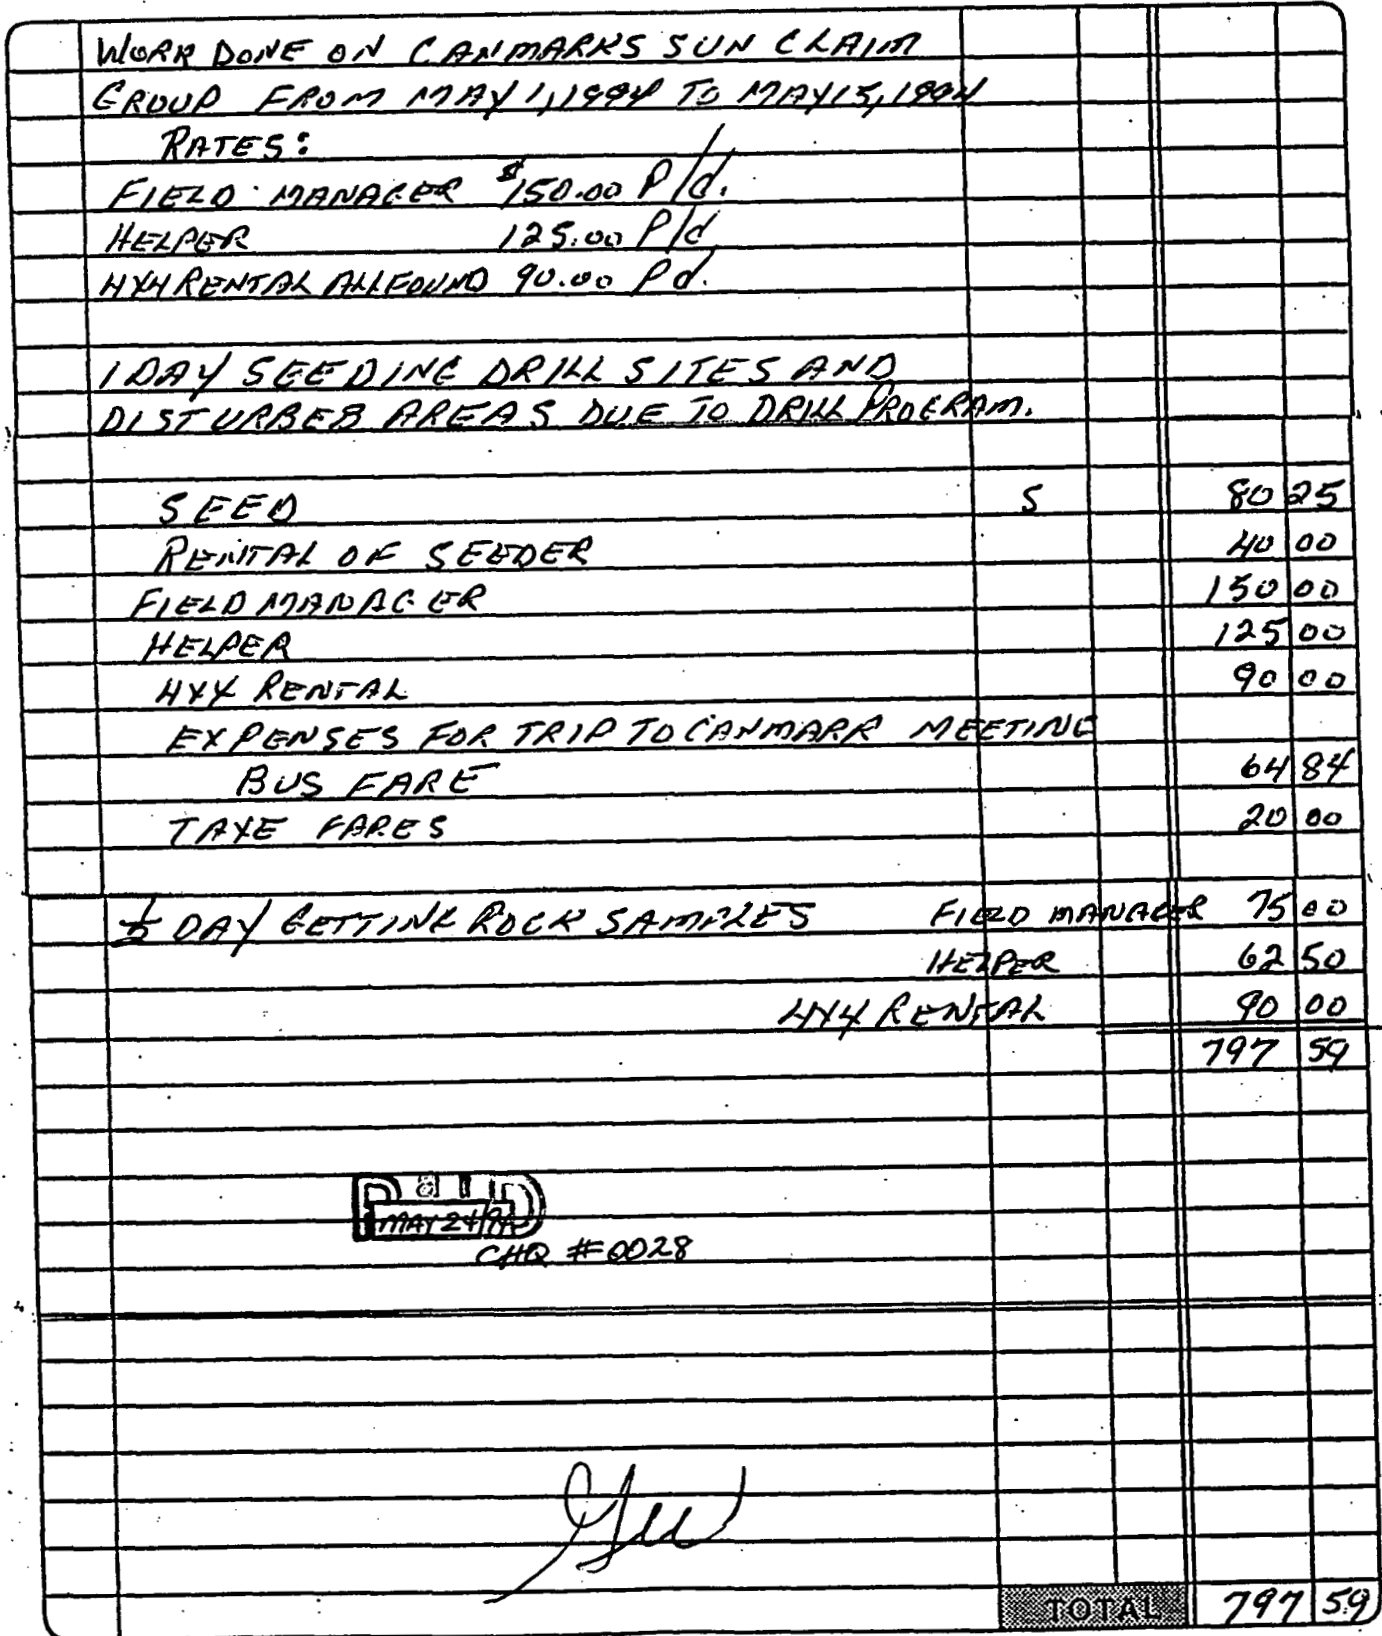 WORK DONE ON CANMARKS SUN CLAIM
GROUP FROM MAY 1, 1994 TO MAY 15, 1994
RATES:
FIELD MANAGER $150.00 P/d.
HELPER 125.00 P/d
4X4 RENTAL ALL FOUND 90.00 Pd.
1 DAY SEEDING DRILL SITES AND
DISTURBEB AREAS DUE TO DRILL PROGRAM.
SEED S 80 25
RENTAL OF SEEDER 40 00
FIELD MANAGER 150 00
HELPER 125 00
4X4 RENTAL 90 00
EXPENSES FOR TRIP TO CANMARK MEETING
BUS FARE 64 84
TAXE FARES 20 00
1/2 DAY GETTING ROCK SAMPLES FIELD MANAGER 75 00
HELPER 62 50
4X4 RENTAL 90 00
797 59
PaID
MAY 24/94
CHQ #0028
TOTAL 797 59